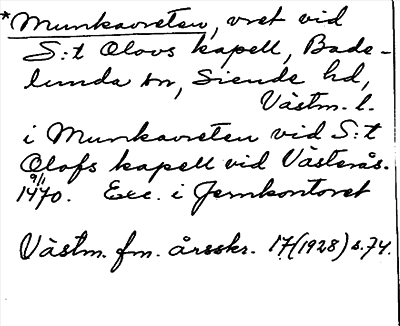 *Munkavreten, vret vid
S:t Olovs kapell, Bade-
lunda sn, Siende hd,
Västm. l.
i Munkavreten vid S:t
Olofs kapell vid Västerås.
9/11 1470. Exc. i Jernkontoret
Västm. fm. årsskr. 17 (1928) s. 74.